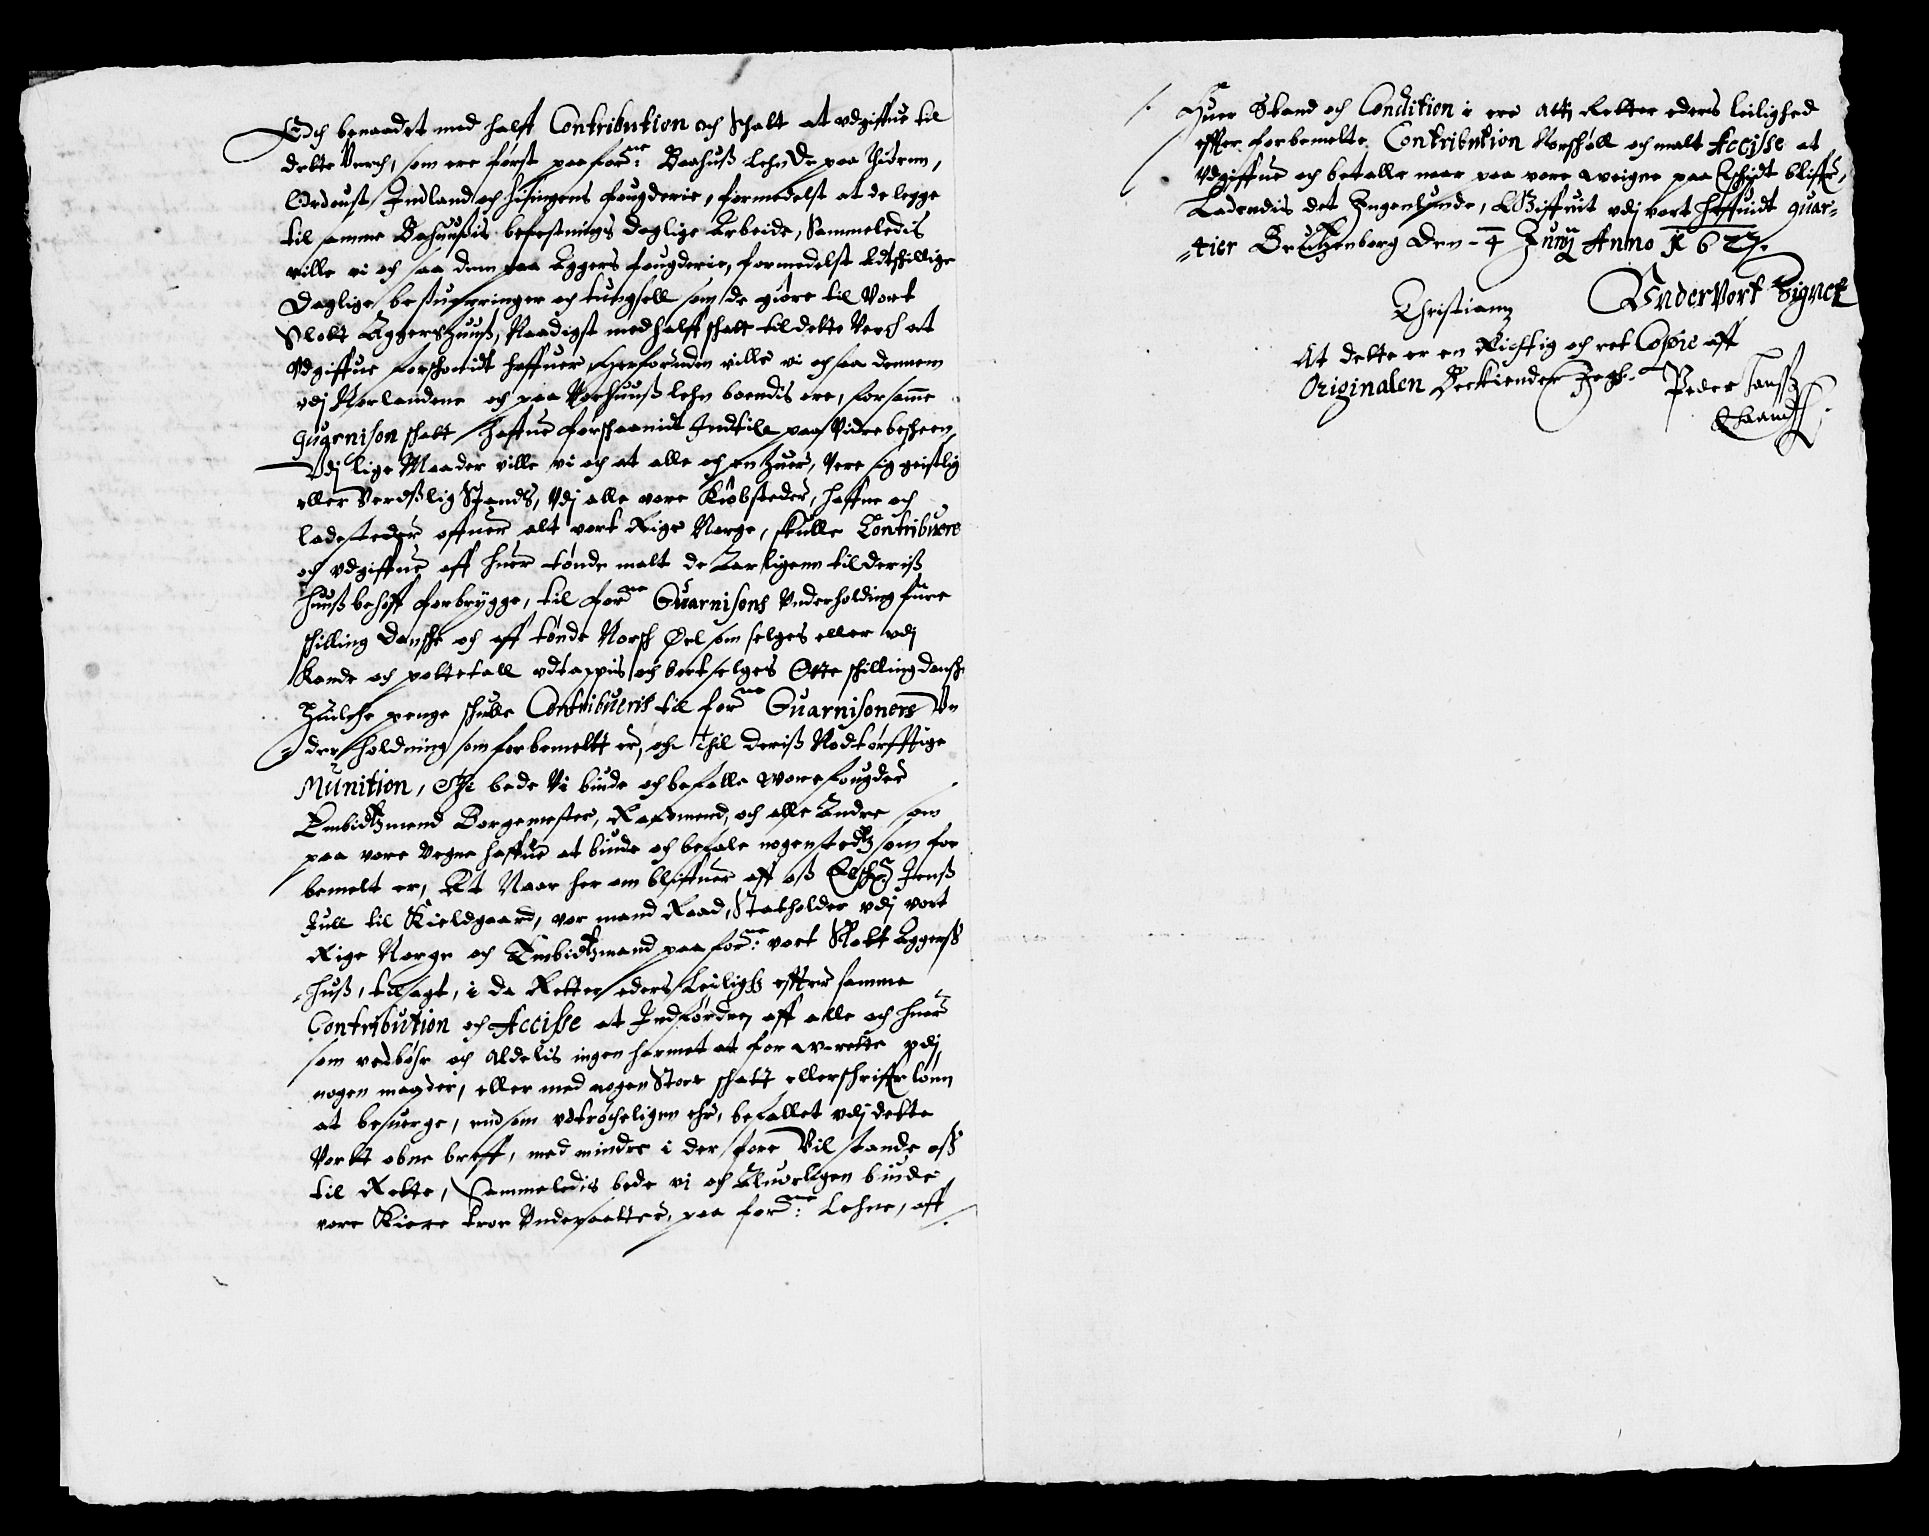 Och benaadet med halft Contribution och Schatt at vdgiffue til
dette Verch, som ere først paa for.ne Baahuß lehn De paa Thiörnn,
Ordoust Indland och Hisingens fougderie, formedelst at de legge
til samme Bahuußis befestnings daglige Arbeide, Sammeledis
ville vi och saa dem paa Aggers fougderie, formedelst Adtschillige
Daglige besuerringer och tungsell som de giøre til Vort
Slott Aggershuuß, Naadigst med halff schatt til dette Verch at
Vdgiffue forschonidt haffuer, Herforuden ville vi och saa dennem
vdj Norlandene och paa Varhuuß lehn boendis ere, for samme
Guarnison schatt haffue forschaanidt Indtill paa Vidre besheen,
Vdj lige Maader ville vi och at alle och en huer, Vere sig geistlig
eller Verdßlig Stands, Vdj alle vore Kiøbsteder, haffne och
ladesteder offuer alt vort Rige Norge, skulle Contribuere
och vdgiffue aff huer tønde malt de Aarligenn til deris
huuß behoff forbrygge, til for.ne Guarnisons Vnderholding fiire
schilling Dansche och aff tønde Norsch Øel som selges eller vdj
Kande och pottetall vdtappis och bortselges Otte schilling dansch
Huilche penge schulle Contribueris til for.ne Guarnisoners Vn
derholdning som forbemeltt er, och Thil deris Nodtørfftige
Munition, Thi bede Vi biude och befalle wore fougder
Embidtzmend Borgemester, Raadmend, och alle Andre som
paa vore Vegne haffue at biude och befale nogensteds som for
bemelt er, At Naar her om bliffuer aff oß Elsch: Jenß
Jull til Kieldgaard, vor mand Raad, Statholder vdj vort
Rige Norge och Embidtzmand paa for.ne vort Slott Aggerß
huß, tilsagt, i da Retter eders Leiligh: effter samme
Contribution och Accisse at Indfordre, aff alle och huer
som vedbøhr och aldelis ingen hermet at forwrette vdj
nogen maader, eller med nogen Store schatt eller schriffr lønn
at besuerge, end som vdtrøcheligen ehr, befallet vdj dette
Vortt obne breff, med mindre i der fore Vil stande oß
til Rette, Sammeledis bede vi och Aluorligen biude
vore Kiere tror Vndersaatter, paa for.ne Lehne, aff
Huer Stand och Condition i ere atj Retter eders leilighed
effter forbemelte Contribution Korschøll och malt Accisse at
Vdgiffue och betalle naar paa vore weigne paa Eschidt bliffr,
Ladendis det Ingenlunde, Giffuit vdj vort hoffuidt quar-
-tier Crutzenborg Den 4 Junj Anno 1627.
Christiann Vnder Vort Signet
At dette er en Rictig och ret Copie aff
Originalen Beckiender Jegh. Peder Hanß